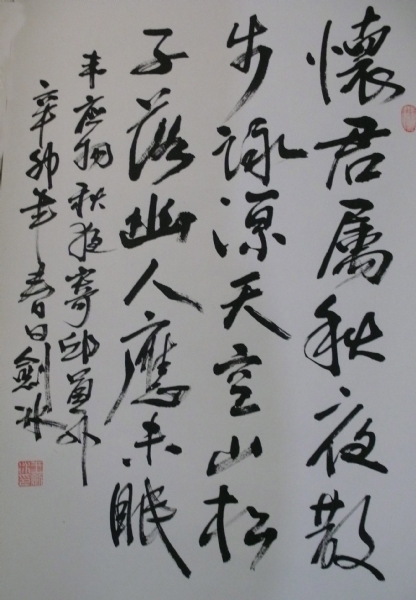 懷君属秋夜散
步詠凉天空山松
子落幽人應未眠
韦应物秋夜寄邱員外
辛卯年春日劍冰